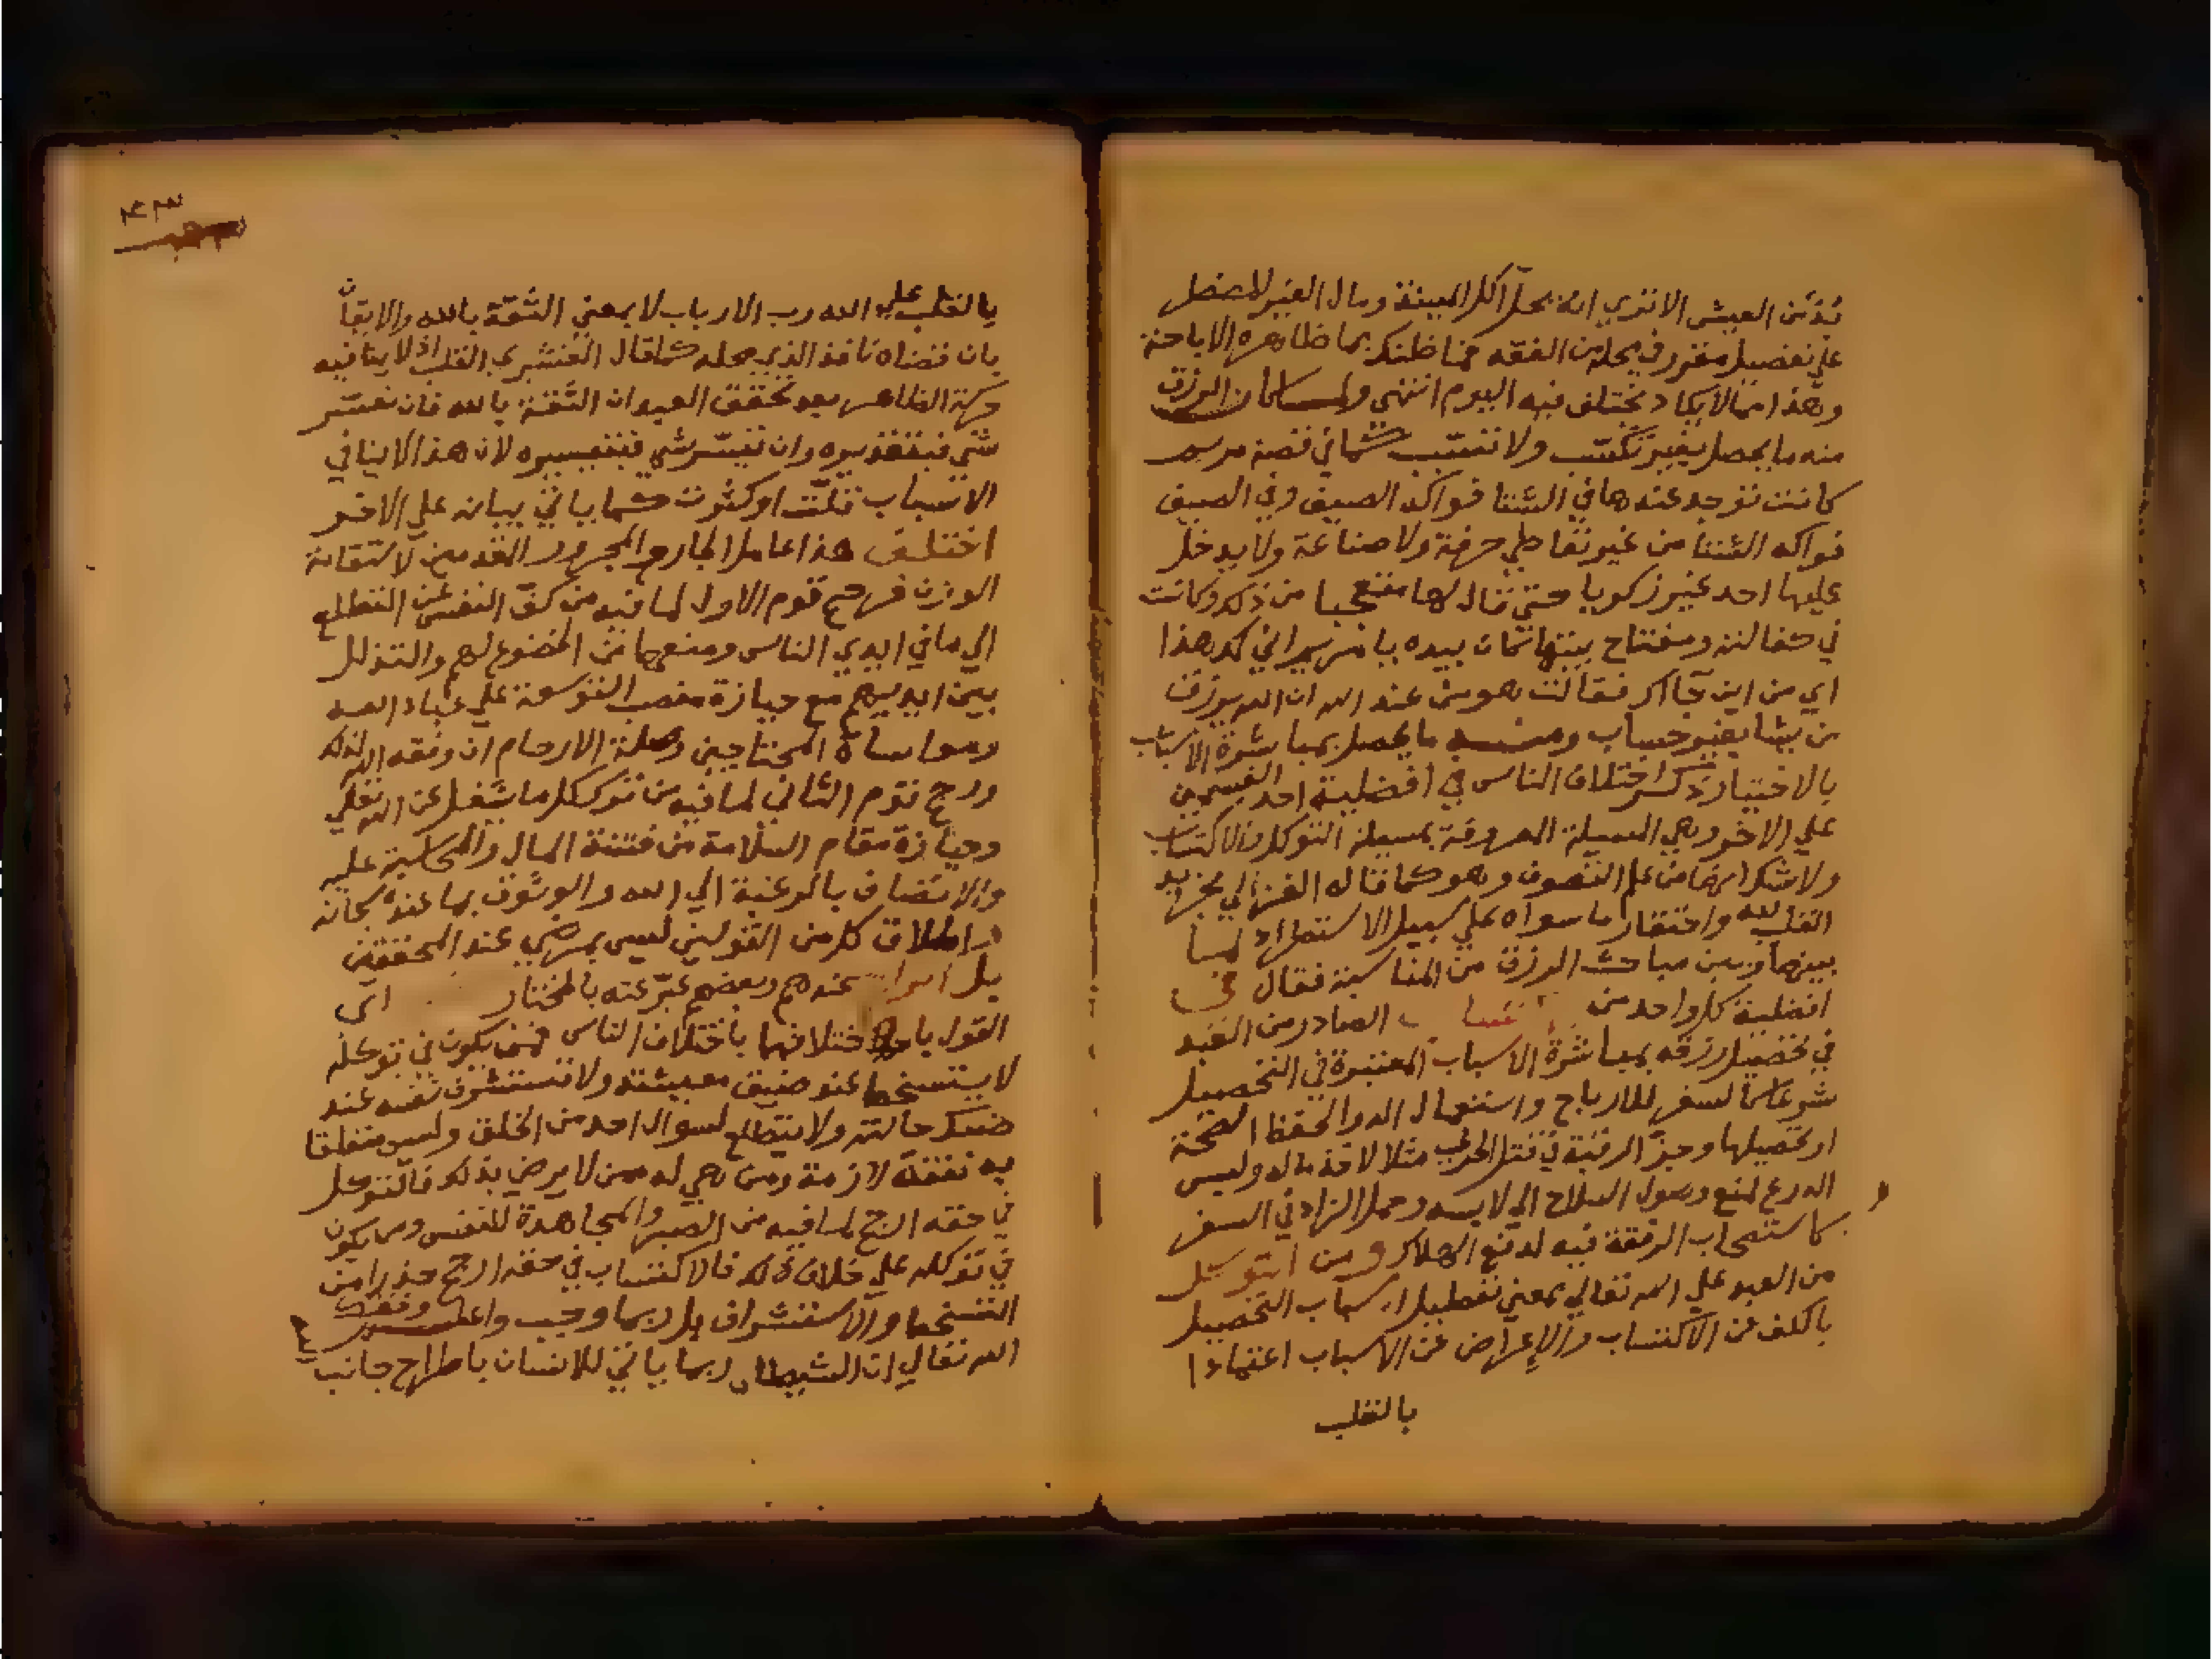 العيش الا تري انه يحل اكل الميتة ومال الغير لاصطر
علي تفصيل مقرر في محله من الفقه فما ظنك بما ظاهره الاباحة
وهذا مما لا يكاد يختلف فيه اليوم انتهي ولما كان الرزق
منه ما يحصل بغير تكسب ولا تسبب كما في قصة مريم
كانت توجد عندها في الشتا فواكه الصيف وفي الصيف
فواكه الشتا من غير تعاطي حرفة ولا صناعة ولا يدخل
عليها احد غير زكريا حتي قال لها متعجبا من ذلك وكانت
في كفالته ومفتاح بيتها كان بيده يا مريم اني لك هذا
اي من اين جاك فقالت هو من عند الله ان الله يرزق
من يشا بغير حساب ومنه ما يحصل بمباشرة الاسباب
بالاختيار ذكر اختلاف الناس في افضلية احد القسمين
علي الاخر وهي المسيلة المعروفة بمسيلة التوكل والاكتساب
ولا شك انهما من علم التصوف وهو كما قاله الغزالي تجريد
القلب لله واحتقار ما سواه علي سبيل الاستطراد لما
بينهما وبين مباحث الرزق من المناسبة فقال في
افضلية كل واحد من الصادر من العبد
في تحصيل رزقه بمباشرة الاسباب المعتبرة في التحصيل
شرعا كالسفر للارباح واستعمال الدوا لحفظ الصحة
او تحصيلها وحز الرقبة في قتل الحربي مثلا لاخذ ماله ولبس
الدرع لمنع وصول السلاح الي لابسه وحمل الزاد في السفر
كاستصحاب الرفقة فيه لدفع الهلاك ومن التوكل
من العبد علي الله تعالي بمعني تعطيل اسباب التحصيل
بالكف عن الاكتساب والاعراض عن الاسباب اعتمادا
بالقلب
٤٣
بالقلب علي الله رب الارباب لا بمعني الثقة بالله والايقان
بان قضاه نافذ الذي محله كما قال القشيري القلب اذ لا ينافيه
حركة الظاهر بعد تحقق العبد ان الثقة بالله فان تعسر
شي فبتقديره وان تيسر شي فبتيسيره لان هذا لا ينافي
الاسباب قلت او كثرت كما ياتي بيانه علي الاخر
اختلف هذا عامل الجار والمجرور المقدمين لاستقامة
الوزن فرجح قوم الاول لما فيه من كف النفس عن التطلع
الي ما في ايدي الناس ومنعها من الخضوع لهم والتذلل
بين ايديهم مع حيازة منصب التوسعة علي عباد الله
ومواساة المحتاجين وصلة الارحام ان وفقه الله لذلك
ورجح قوم الثاني لما فيه من ترك كل ما يشغل عن الله تعالي
وحيازة مقام السلامة من فتنة المال والمحاسبة عليه
والاتصاف بالرغبة الي الله والوثوق بما عنده سبحانه
واطلاق كل من القولين ليس بمرضي عند المحققين
بل عندهم وبعضهم عبر عنه بالمختار اي
القول باختلافها باختلاف الناس فمن يكون في توكله
لا يتسخط عند ضيق معيشته ولا تستشرف نفسه عند
ضنك حالته ولا يتطلع لسوال احد من الخلق وليس متعلقا
به نفقة لازمة ومن هي له ممن لا يرضي بذلك فالتوكل
في حقه ارجح لما فيه من الصبر والمجاهدة للنفس ومن يكون
في توكله علي خلاف ذلك فالاكتساب في حقه ارجح حذرا من
التسخط والاستشراف بل ربما وجب واعلم وفقك
الله تعالي ان الشيطان ربما ياتي للانسان باطراح جانب